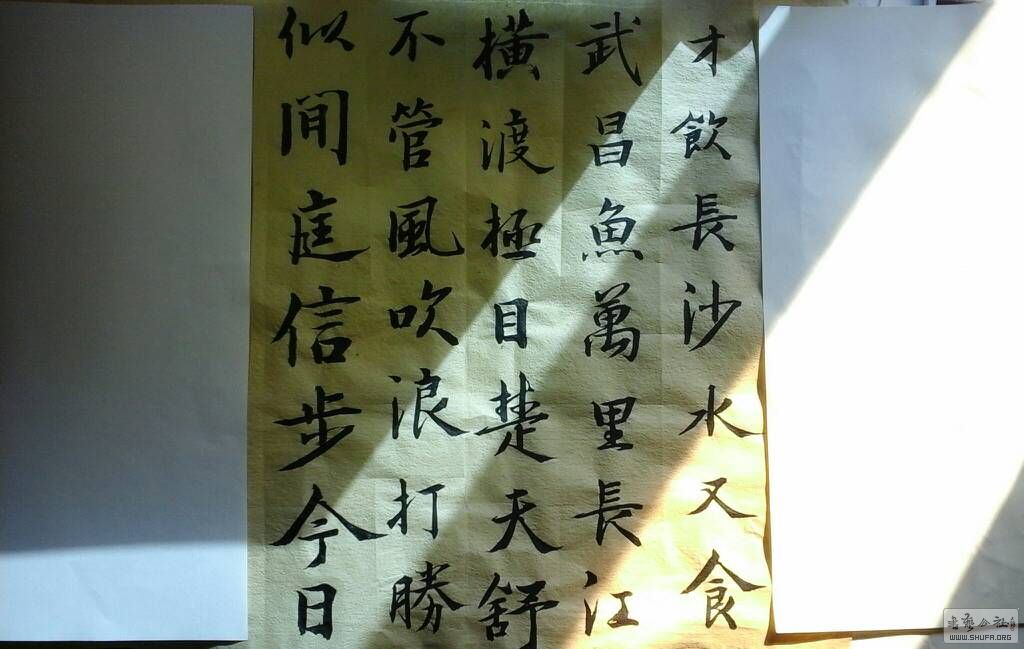 才飲長沙水又食
武昌魚萬里長江
橫渡極目楚天舒
不管風吹浪打勝
似間庭信步今日
書藝公社
WWW.SHUFA.ORG